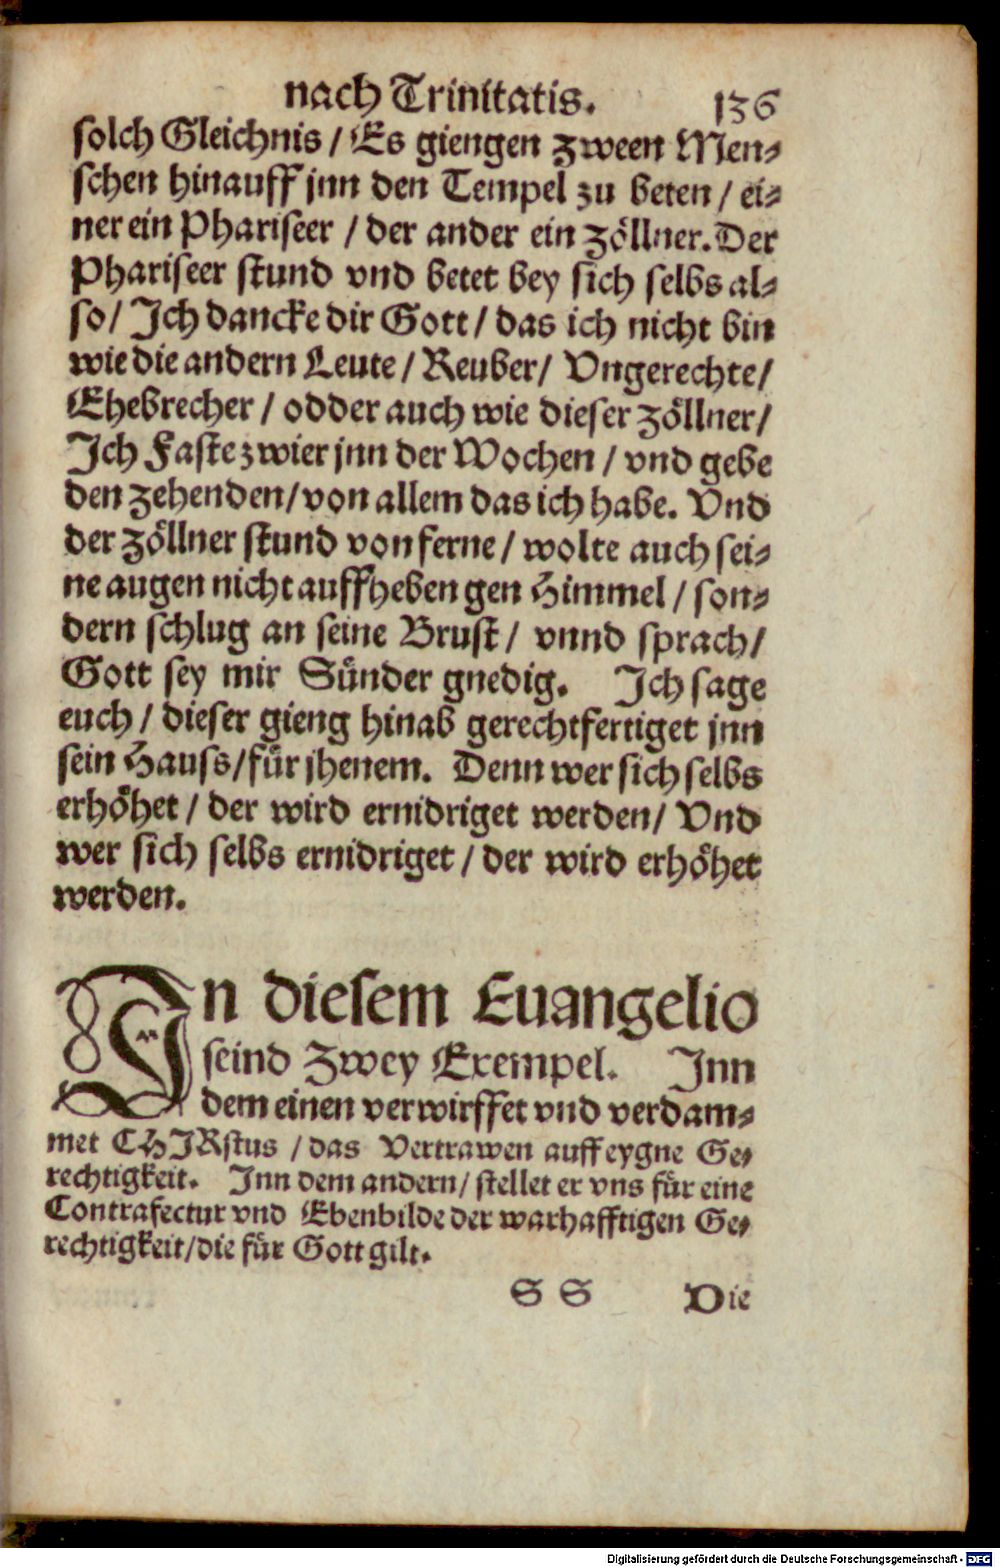 nach Trinitatis. 136
solch Gleichnis / Es giengen zween Men⸗
schen hinauff jnn den Tempel zu beten / ei⸗
ner ein Phariseer / der ander ein zöllner. Der
Phariseer stund vnd betet bey sich selbs al⸗
so / Ich dancke dir Gott / das ich nicht bin
wie die andern Leute / Reuber / Vngerechte /
Ehebrecher / odder auch wie dieser zöllner /
Ich Faste zwier jnn der Wochen / vnd gebe
den zehenden / von allem das ich habe. Vnd
der zöllner stund von ferne / wolte auch sei⸗
ne augen nicht auffheben gen Himmel / son⸗
dern schlug an seine Brust / vnnd sprach /
Gott sey mir Sünder gnedig. Ich sage
euch / dieser gieng hinab gerechtfertiget jnn
sein Hauss / für jhenem. Denn wer sich selbs
erhöhet / der wird ernidriget werden / Vnd
wer sich selbs ernidriget / der wird erhöhet
werden.
In diesem Euangelio
seind zwey Exempel. Inn
dem einen verwirffet vnd verdam⸗
met CHIRstus / das Vertrawen auff eygne Ge⸗
rechtigkeit. Inn dem andern / stellet er vns für eine
Contrafectur vnd Ebenbilde der warhafftigen Ge⸗
rechtigkeit / die für Gott gilt.
S S Die
Digitalisierung gefördert durch die Deutsche Forschungsgemeinschaft - DFG